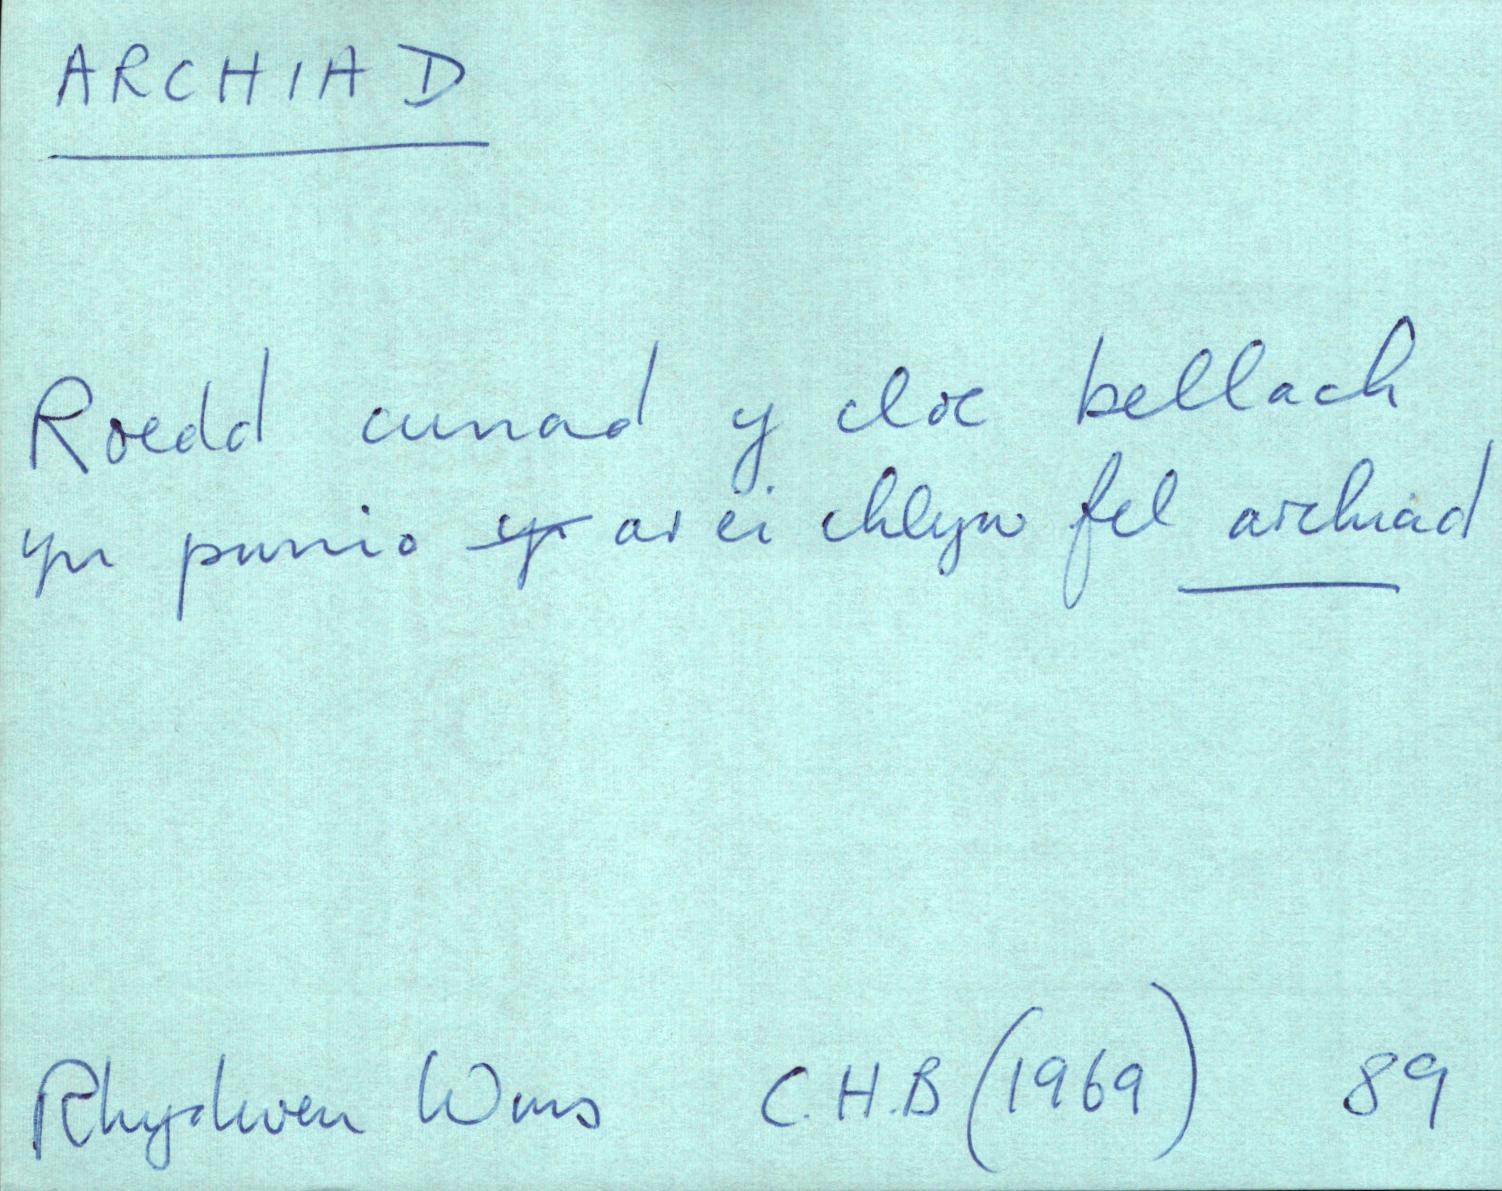 ARCHIAD
Roedd curiad y cloc bellach
yn pwnio ar ei chlyw fel archiad
Rhydwen Wms C.H.B (1969) 89